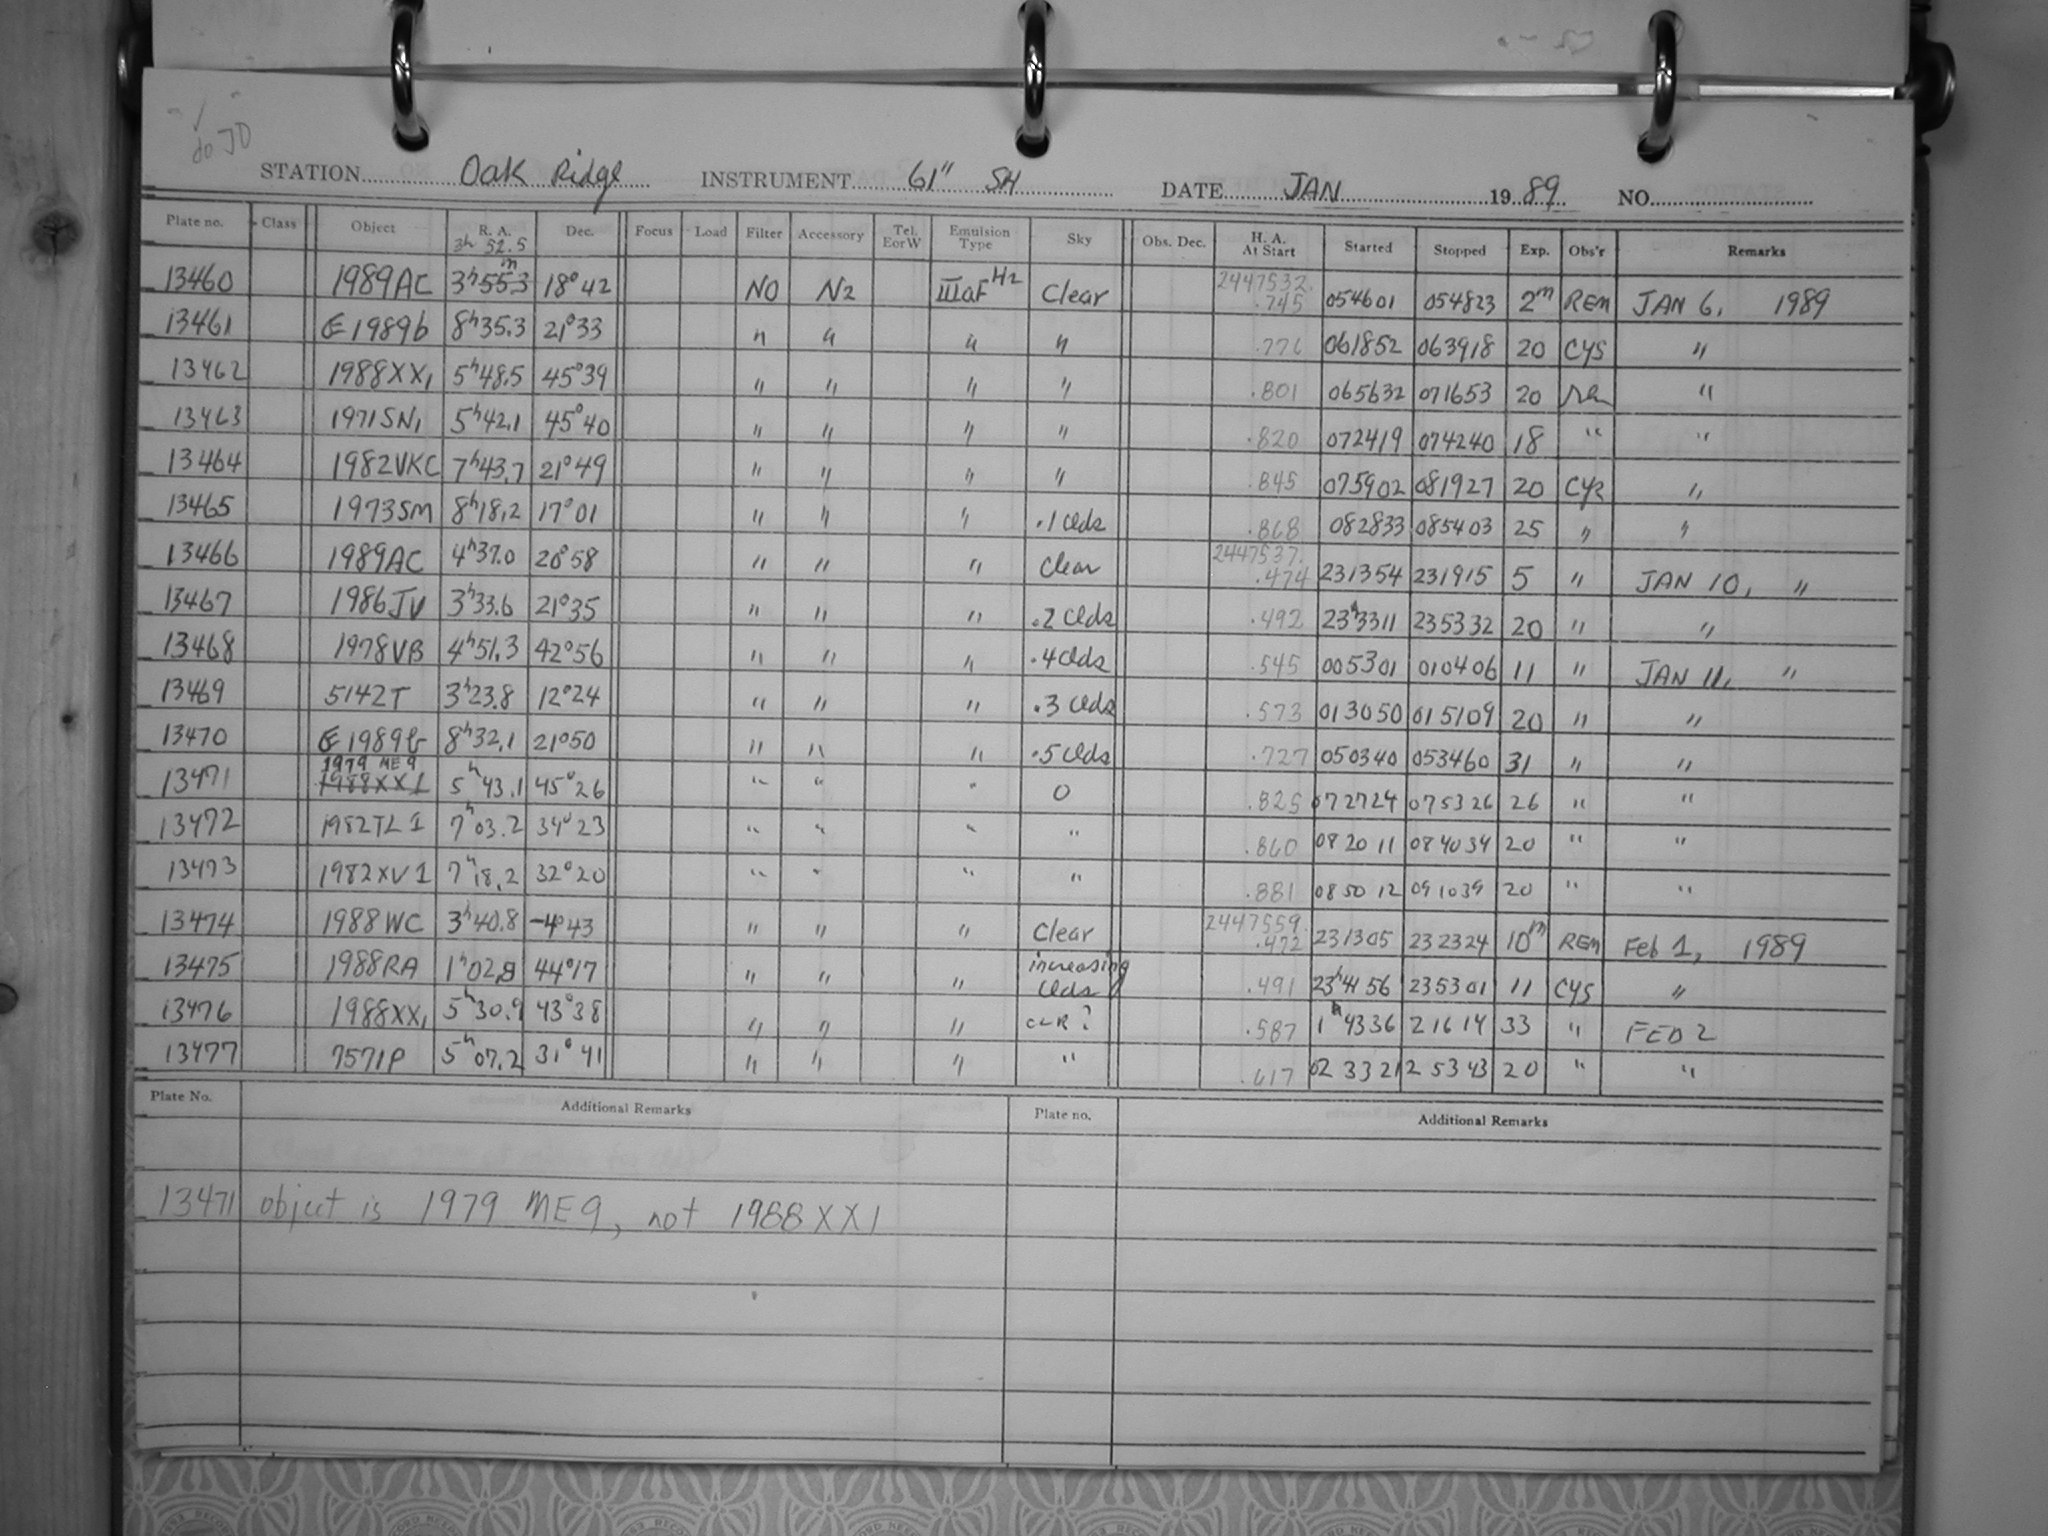 do JD
STATION Oak Ridge INSTRUMENT 61" SH DATE JAN 1989 NO.
Plate no. Class Object R. A. Dec. Focus Load Filter Accessory Tel. E or W Emulsion Type Sky Obs. Dec. H. A. At Start Started Stopped Exp. Obs'r Remarks
3h 52.5
13460 1989AC 3h55.3m 18°42 NO N2 IIIaF H2 Clear 2447532. .745 054601 054823 2m REM JAN 6, 1989
13461 1989b 8h35.3 21°33 " " " " .776 061852 063918 20 CYS "
13462 1988XX1 5h48.5 45°39 " " " " .801 065632 071653 20 "
13463 1971SN1 5h42.1 45°40 " " " " .820 072419 074240 18 " "
13464 1982VKC 7h43.7 21°49 " " " " .845 075902 081927 20 CYS "
13465 1973SM 8h18.2 17°01 " " " .1 clds .868 082833 085403 25 " "
13466 1989AC 4h37.0 20°58 " " " Clear 2447537. .474 231354 231915 5 " JAN 10, "
13467 1986JV 3h33.6 21°35 " " " .2 clds .492 23h3311 235332 20 " "
13468 1978VB 4h51.3 42°56 " " " .4 clds .545 005301 010406 11 " JAN 11, "
13469 5142T 3h23.8 12°24 " " " .3 clds .573 013050 015109 20 " "
13470 1989b 8h32.1 21°50 " " " .5 clds .727 050340 053460 31 " "
1979 ME9
13471 1988XX1 5h43.1 45°26 " " " 0 .825 072724 075326 26 " "
13472 1982TL1 7h03.2 34°23 " " " " .860 082011 084034 20 " "
13473 1982XV1 7h18.2 32°20 " " " " .881 085012 091039 20 " "
13474 1988WC 3h40.8 -4°43 " " " Clear 2447559. .472 231305 232324 10m REM Feb 1, 1989
13475 1988RA 1h02.8 44°17 " " " increasing clds .491 23h4156 235301 11 CYS "
13476 1988XX1 5h30.9 43°38 " " " CLR? .587 1h4336 21614 33 " FEB 2
13477 7571P 5h07.2 31°41 " " " " .617 023321 25343 20 " "
Plate No. Additional Remarks Plate no. Additional Remarks
13471 object is 1979 ME9, not 1988XX1